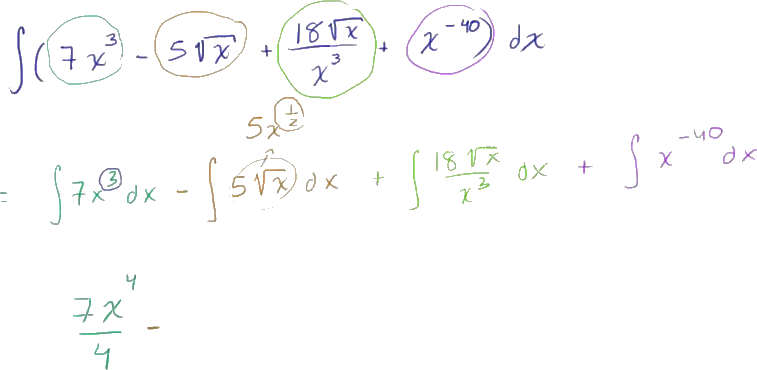 ∫(7x³ - 5√x + 18√x/x³ + x⁻⁴⁰) dx
5x^(1/2)
= ∫7x³ dx - ∫5√x dx + ∫18√x/x³ dx + ∫x⁻⁴⁰ dx
7x⁴/4 -